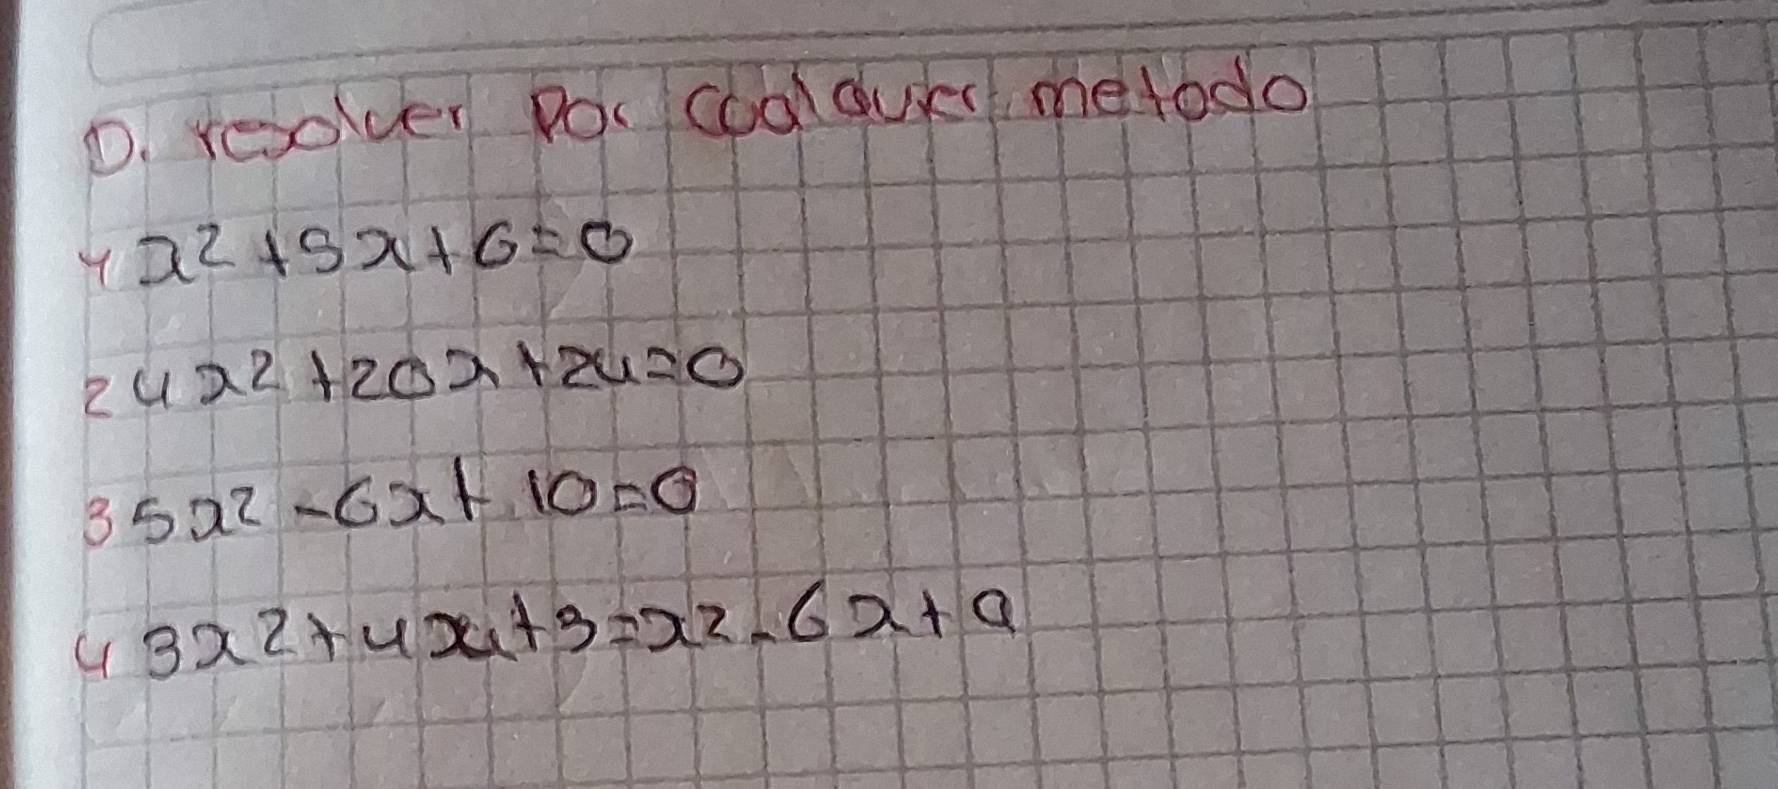 D. resolver por cualquier metodo
1 x² + 5x + 6 = 0
2 4x² + 20x + 24 = 0
3 5x² - 6x + 10 = 0
4 3x² + 4x + 3 = x² - 6x + 9